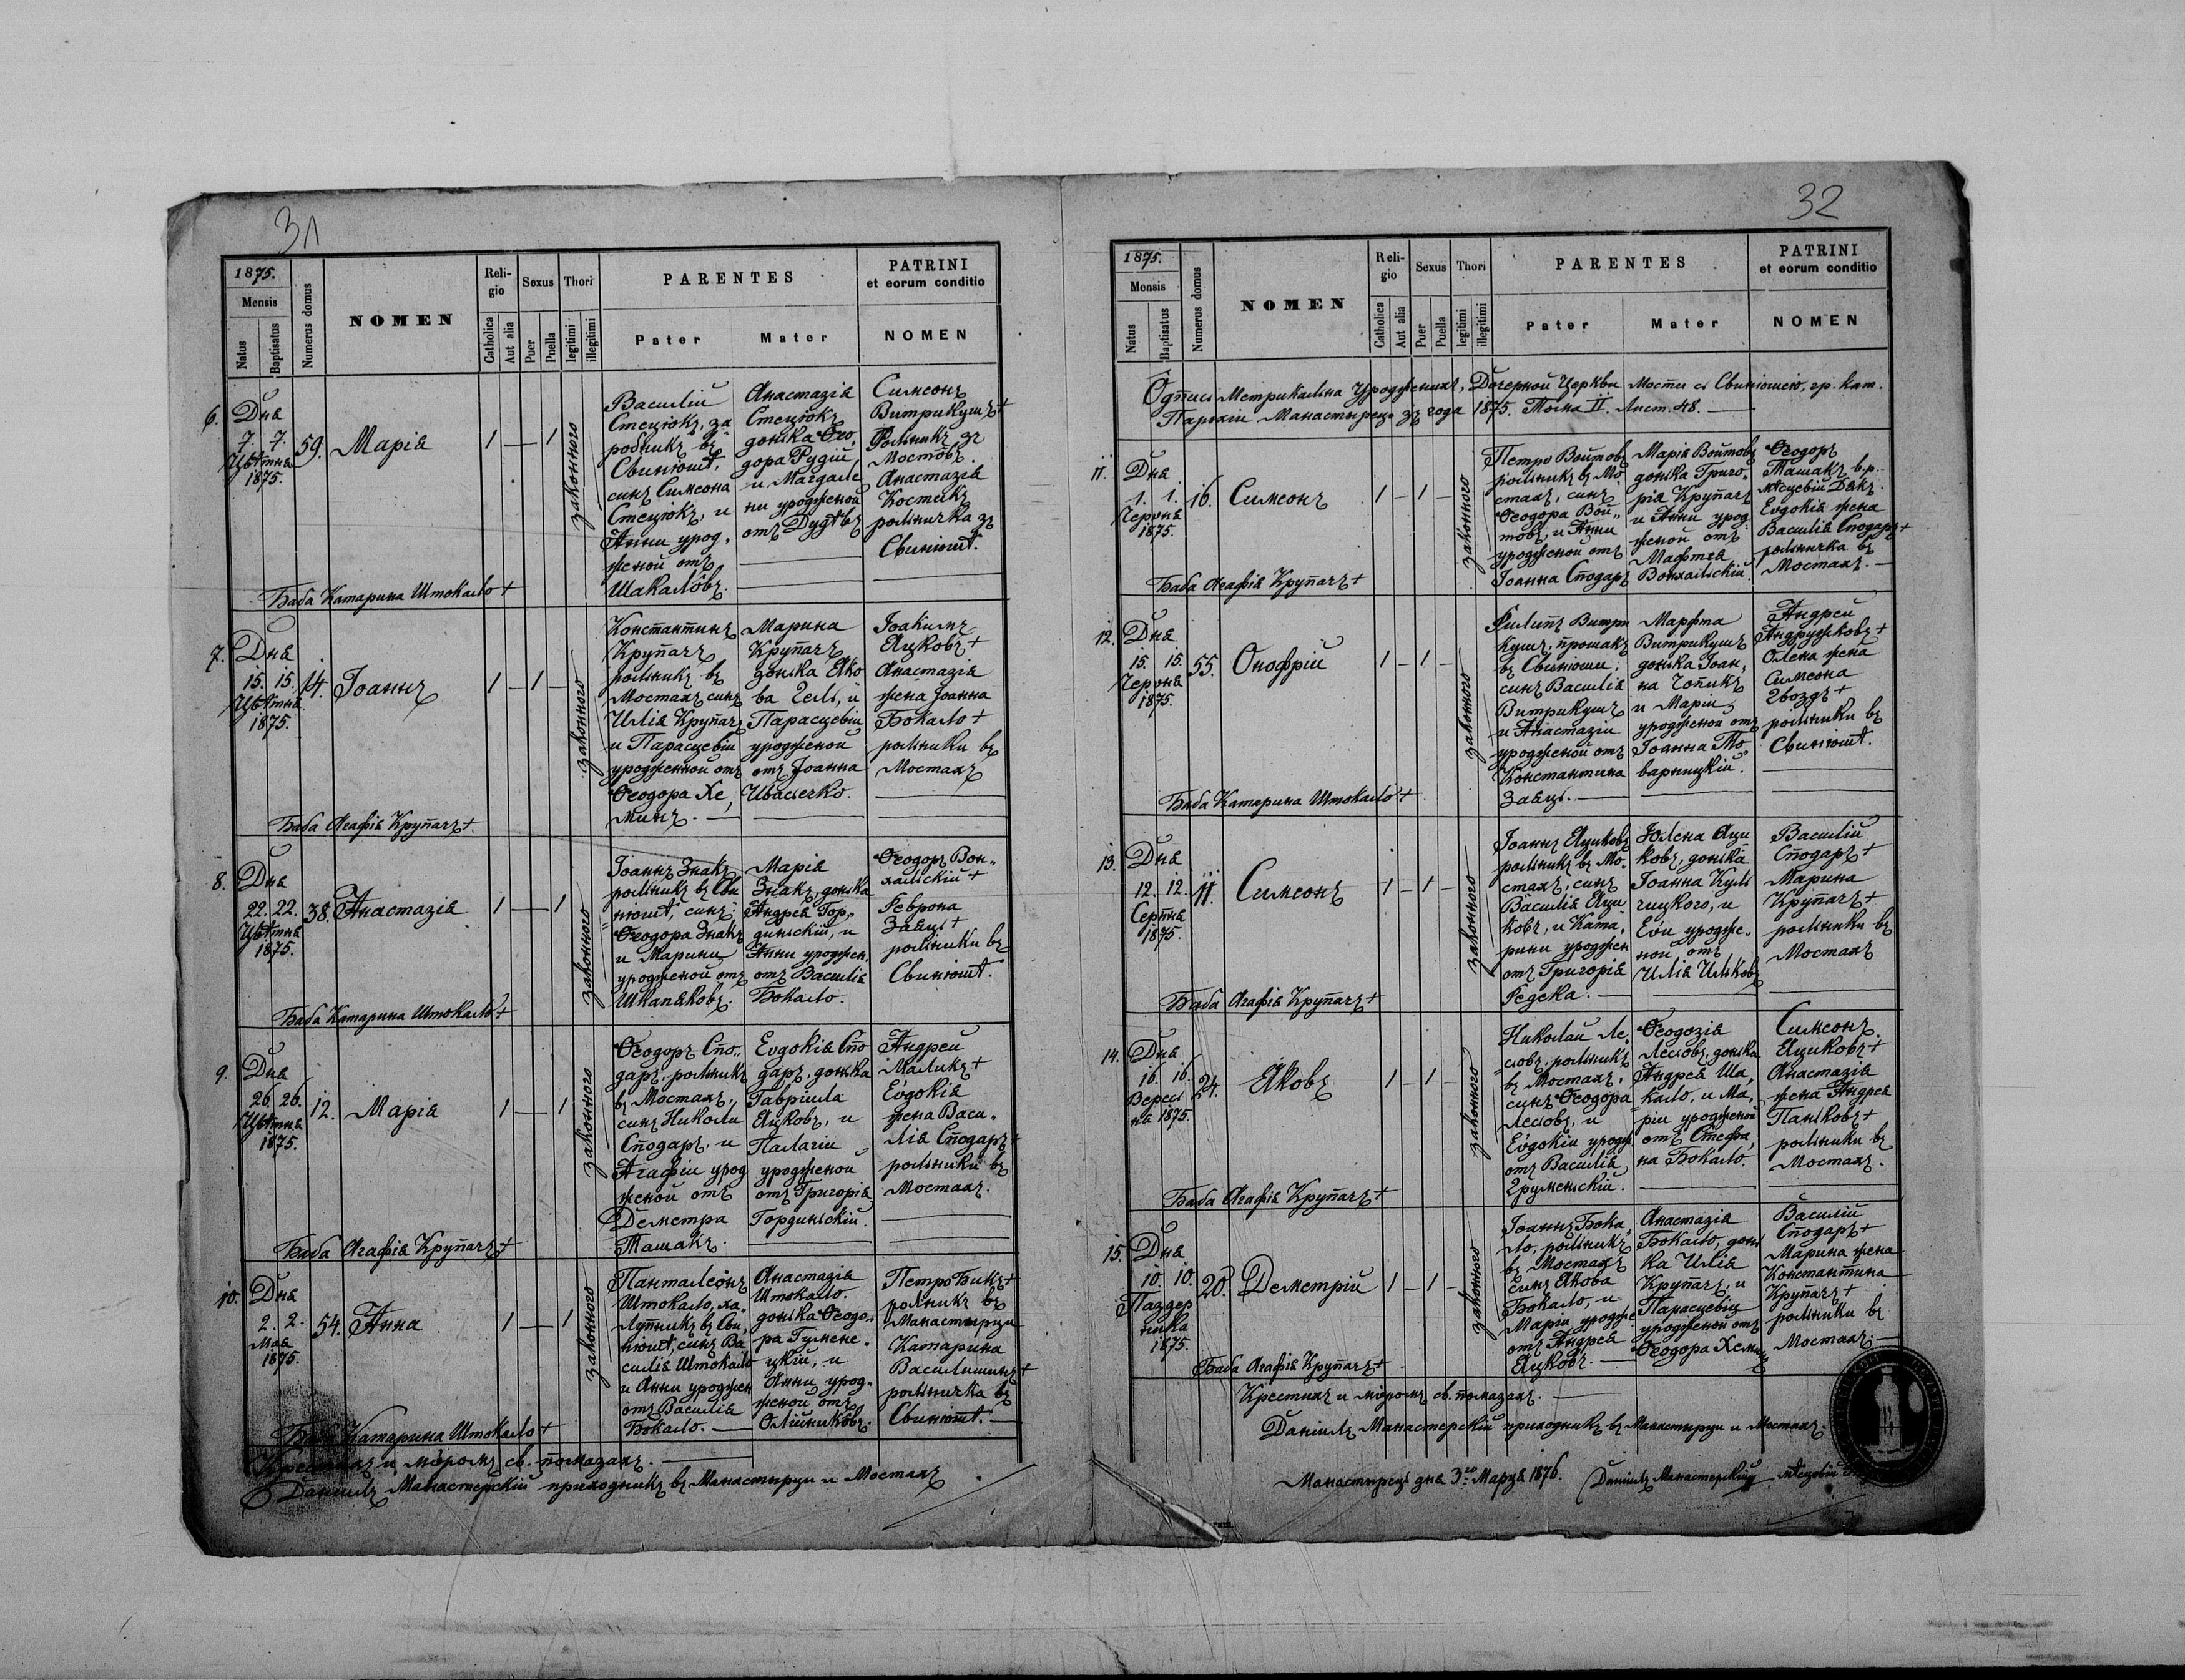 31
1875.
Mensis
Natus
Baptisatus
Numerus domus
NOMEN
Religio
Catholica
Aut alia
Sexus
Puer
Puella
Thori
legitimi
illegitimi
PARENTES
Pater
Mater
PATRINI
et eorum conditio
NOMEN
6. Дня
7. 7.
Цвѣтня
1875.
59. Марія
1 — 1
законного
Василій
Стецюкъ, за
робникъ въ
Свинюшѣ,
синъ Симеона
Стецюкъ, и
Анни урод„
женой отъ
Шакалôвъ.
Анастазія
Стецюкъ
донька Ѳео„
дора Рудій
и Магдале
ни уродженой
отъ Дудѣвъ
Симеонъ
Витрикушъ+
Рольникъ зъ
Мостôвъ.
Анастазія
Костикъ
рольничка зъ
Свинюшѣ.
Баба Катарина Штокало+
7. Дня
15. 15.
Цвѣтня
1875.
14. Іоаннъ
1 — 1 —
законного
Константинъ
Крупачъ
рольникъ въ
Мостахъ синъ
Илія Крупачъ
и Парасцевіи
уродженной отъ
Ѳеодора Хе„
минъ. —
Марина
Крупачъ
донька Яко
ва Гель, и
Парасцевіи
уродженой
отъ Іоанна
Ивасечко.
Іоакимъ
Яцковъ+
Анастазія
жена Іоанна
Бокало+
рольники въ
Мостахъ
Баба Агафія Крупачъ+
8. Дня
22. 22.
Цвѣтня
1875.
38. Анастазія
1 — 1
законного
Іоаннъ Знакъ
рольникъ въ Сви
нюшѣ, синъ
Ѳеодора Знакъ
и Марини
уродженой отъ
Шкапяковъ.
Марія
Знакъ, донька
Андрея Гор„
диньскій, и
Анни уроджен.
отъ Василія
Бокало.
Ѳеодоръ Вон„
хальскій+
Феврона
Заяць+
рольники въ
Свинюшѣ.
Баба Катарина Штокало+
9. Дня
26. 26.
Цвѣтня
1875.
12. Марія
1 — 1
законного
Ѳеодоръ Спо„
даръ, рольникъ
въ Мостахъ,
синъ Николи
Сподаръ, и
Агафіи урод
женой отъ
Деметра
Ташакъ.
Евдокія Спо
даръ, донька
Гавріила
Яцковъ, и
Палагіи
уродженой
отъ Григорія
Гординьскій.
Андрей
Маликъ+
Евдокія
жена Васи„
лія Сподаръ+
рольники въ
Мостахъ.
Баба Агафія Крупачъ+
10. Дня
2. 2.
Мая
1875.
54. Анна
1 — 1
законного
Пантелеонъ
Штокало, ха„
лупникъ въ Сви„
нюшѣ, синъ Ва
силія Штокало
и Анни уроджен
отъ Василія
Бокало. —
Анастазія
Штокало.
донька Ѳеодо„
ра Гумене„
цкій, и
Анни урод„
женой отъ
Олійниковъ.
Петро Бикъ+
рольникъ въ
Манастирци
Катарина
Василишинъ+
рольничка въ
Свинюшѣ. —
Баба Катарина Штокало+
Крестилъ и мѵромъ св. помазалъ. —
Даніилъ Манастерскій приходникъ въ Манастирци и Мостахъ
32
1875.
Mensis
Natus
Baptisatus
Numerus domus
NOMEN
Religio
Catholica
Aut alia
Sexus
Puer
Puella
Thori
legitimi
illegitimi
PARENTES
Pater
Mater
PATRINI
et eorum conditio
NOMEN
Ôтписъ Метрикальна Урожденихъ, Дочерной Церкви Мости съ Свинюшею, гр. кат.
Парохіи Манастирець зъ года 1875. Тома II. Лист. 48. —
11. Дня
1. 1.
Червня
1875.
16. Симеонъ
1 — 1 —
законного
Петро Войтовъ
рольникъ въ Мо
стахъ, синъ
Ѳеодора Вой„
товъ, и Анни
уродженой отъ
Іоанна Сподаръ
Марія Войтовъ
донька Григо„
рія Крупачъ
и Анни урод
женой отъ
Мафтея
Вонхальскій.
Ѳеодоръ
Ташакъ в.р.
мѣсцевій Дякъ.
Евдокія жена
Василія Сподаръ+
рольничка въ
Мостахъ. —
Баба Агафія Крупачъ+
12. Дня
15. 15.
Червня
1875.
55. Онофрій
1 — 1 —
законного
Филипъ Витри
кушъ, прошакъ
въ Свинюши,
синъ Василія
Витрикушъ
и Анастазіи
уродженой отъ
Константина
Заяць. —
Марфта
Витрикушъ
донька Іоан„
на Чопикъ
и Маріи
уродженой отъ
Іоанна То„
варницкій.
Андрей
Андрушковъ+
Олена жена
Симеона
Гвоздъ+
рольники въ
Свинюшѣ.
Баба Катарина Штокало+
13. Дня
12. 12.
Серпня
1875.
11. Симеонъ
1 — 1 —
законного
Іоаннъ Яцковъ
рольникъ въ Мо„
стахъ, синъ
Василія Яц
ковъ, и Ката„
рини уроджен
отъ Григорія
Федека. —
Юлена Яц
ковъ, донька
Іоанна Куль
чицкого, и
Еви уродже„
ной отъ
Илія Ильковъ
Василій
Сподаръ+
Марина
Крупачъ+
рольники въ
Мостахъ
Баба Агафія Крупачъ+
14. Дня
16. 16.
Верес
ня 1875.
24. Яковъ
1 — 1 —
законного
Николай Ле„
сювъ, рольникъ
въ Мостахъ,
синъ Ѳеодора
Лесювъ, и
Евдокіи урод
отъ Василія
Груменьскій.
Ѳеодозія
Лесювъ, донька
Андрея Ша„
кало, и Ма„
ріи уродженой
отъ Стефа„
на Бокало.
Симеонъ
Яциковъ+
Анастазія
жена Андрея
Паньковъ+
рольники въ
Мостахъ.
Баба Агафія Крупачъ+
15. Дня
10. 10.
Паздер
ника
1875.
20. Деметрій
1 — 1 —
законного
Іоаннъ Бока„
ло, рольникъ
въ Мостахъ
синъ Якова
Бокало, и
Маріи уродже
отъ Андрея
Яцковъ. —
Анастазія
Бокало, донь
ка Илія
Крупачъ, и
Парасцевіи
уродженой отъ
Ѳеодора Хеминъ
Василій
Сподаръ+
Марина жена
Константина
Крупачъ+
рольники въ
Мостахъ. —
Баба Агафія Крупачъ+
Крестилъ и мѵромъ св. помазалъ. —
Даніилъ Манастерскій приходникъ въ Манастирци и Мостахъ.
Манастирець дня 3го Марца 1876. Даніилъ Манастерскій мѣсцевій